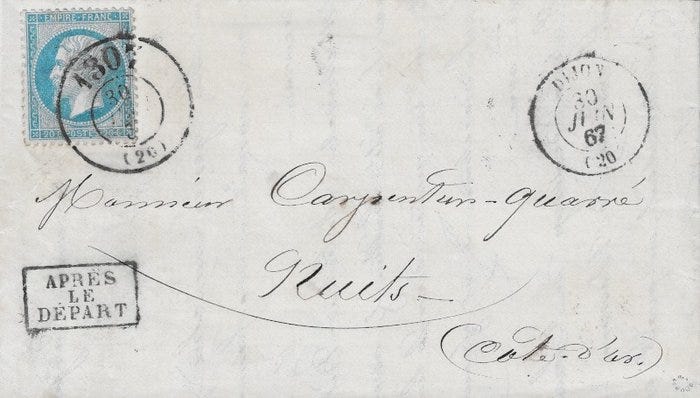 EMPIRE FRANC
20 C POSTES 20 C
1307
30
(20)
DIJON
30
JUIN
67
(20)
Monsieur Carpentier-Quarré
Nuits
(Côte-d'or)
APRÈS
LE
DÉPART